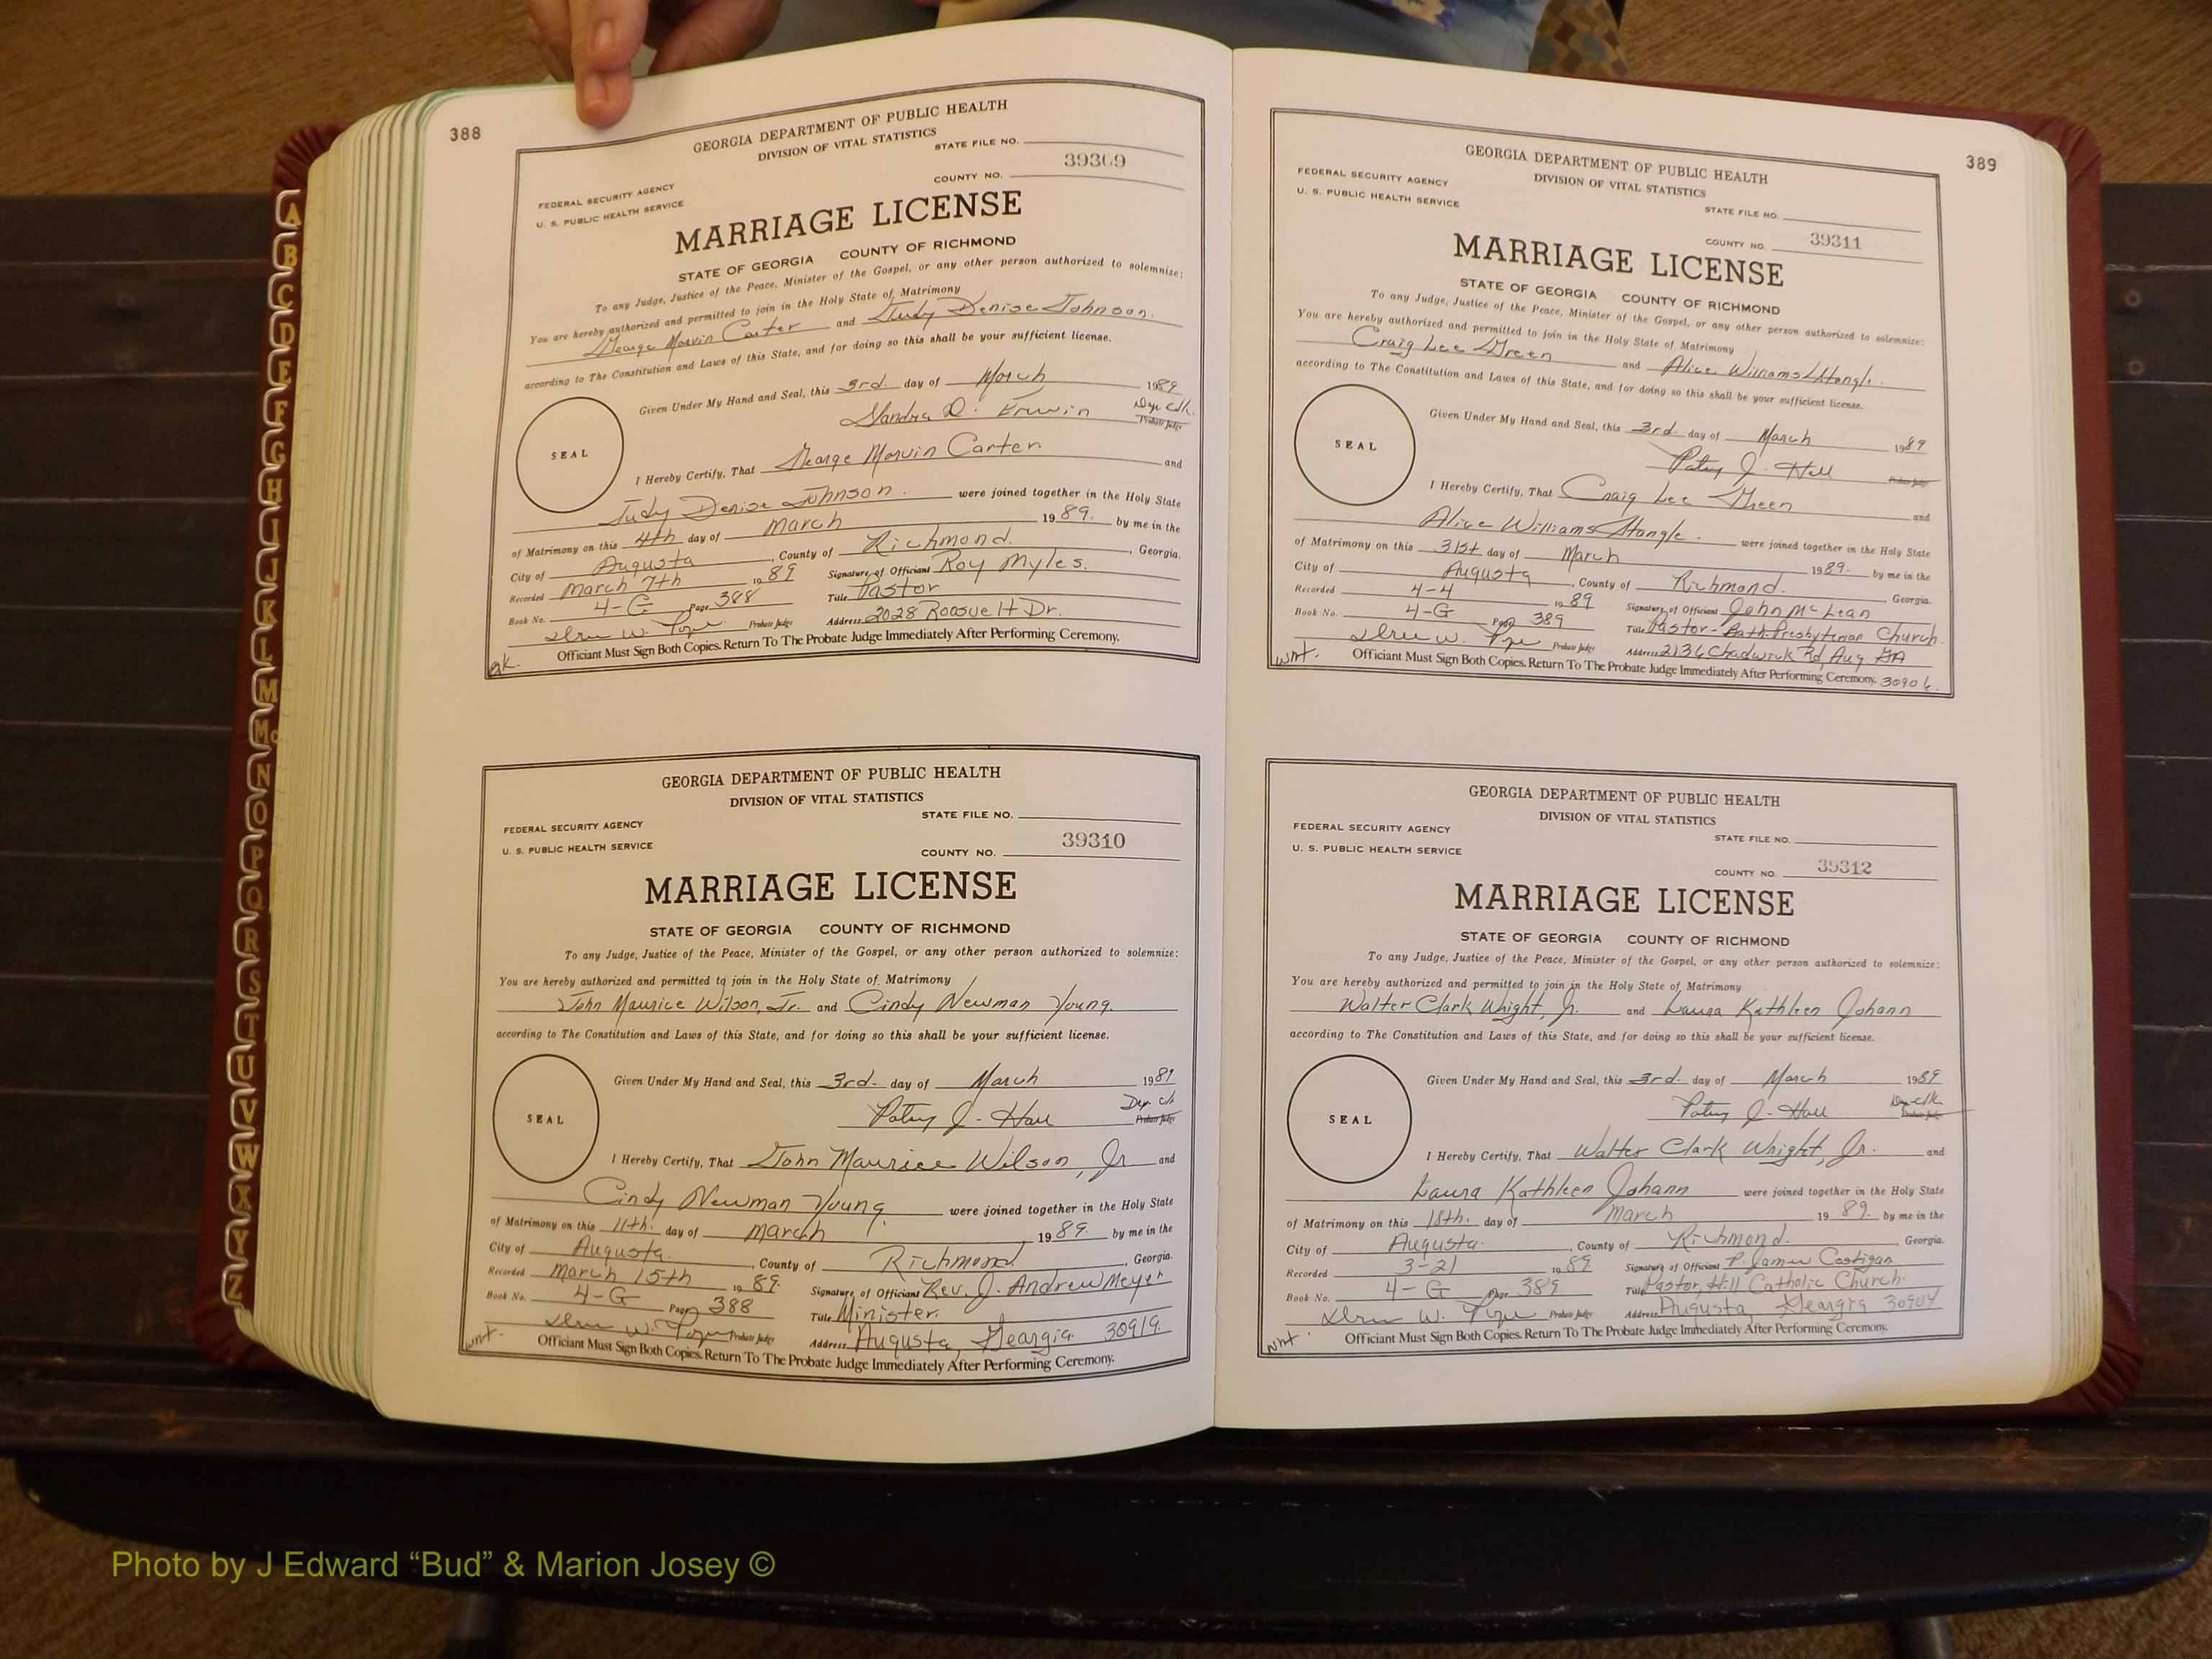 388
GEORGIA DEPARTMENT OF PUBLIC HEALTH
DIVISION OF VITAL STATISTICS
STATE FILE NO.
39309
COUNTY NO.
FEDERAL SECURITY AGENCY
U. S. PUBLIC HEALTH SERVICE
MARRIAGE LICENSE
STATE OF GEORGIA COUNTY OF RICHMOND
To any Judge, Justice of the Peace, Minister of the Gospel, or any other person authorized to solemnize:
You are hereby authorized and permitted to join in the Holy State of Matrimony
George Marvin Carter and Judy Denise Johnson.
according to The Constitution and Laws of this State, and for doing so this shall be your sufficient license.
Given Under My Hand and Seal, this 3rd. day of March 1989
Sandra D. Erwin Dep. Clk.
Probate Judge
SEAL
I Hereby Certify, That George Marvin Carter and
Judy Denise Johnson. were joined together in the Holy State
of Matrimony on this 4th day of March 1989. by me in the
City of Augusta, County of Richmond., Georgia.
Recorded March 7th 1989 Signature of Officiant Roy Myles.
Book No. 4-G Page 388 Title Pastor
Probate Judge Address 2028 Roosuelt Dr.
Officiant Must Sign Both Copies. Return To The Probate Judge Immediately After Performing Ceremony.
GEORGIA DEPARTMENT OF PUBLIC HEALTH
DIVISION OF VITAL STATISTICS
STATE FILE NO.
FEDERAL SECURITY AGENCY
U. S. PUBLIC HEALTH SERVICE
COUNTY NO. 39310
MARRIAGE LICENSE
STATE OF GEORGIA COUNTY OF RICHMOND
To any Judge, Justice of the Peace, Minister of the Gospel, or any other person authorized to solemnize:
You are hereby authorized and permitted to join in the Holy State of Matrimony
John Maurice Wilson, Jr. and Cindy Newman Young.
according to The Constitution and Laws of this State, and for doing so this shall be your sufficient license.
Given Under My Hand and Seal, this 3rd. day of March 1989
Patsy J. Hall Dep. Clk
Probate Judge
SEAL
I Hereby Certify, That John Maurice Wilson, Jr and
Cindy Newman Young. were joined together in the Holy State
of Matrimony on this 11th. day of March 1989. by me in the
City of Augusta., County of Richmond., Georgia.
Recorded March 15th 1989. Signature of Officiant Rev. J. Andrew Meyer
Book No. 4-G Page 388 Title Minister.
Probate Judge Address Augusta, Georgia 30919.
wnt.
Officiant Must Sign Both Copies. Return To The Probate Judge Immediately After Performing Ceremony.
389
GEORGIA DEPARTMENT OF PUBLIC HEALTH
DIVISION OF VITAL STATISTICS
FEDERAL SECURITY AGENCY
U. S. PUBLIC HEALTH SERVICE
STATE FILE NO.
COUNTY NO. 39311
MARRIAGE LICENSE
STATE OF GEORGIA COUNTY OF RICHMOND
To any Judge, Justice of the Peace, Minister of the Gospel, or any other person authorized to solemnize:
You are hereby authorized and permitted to join in the Holy State of Matrimony
Craig Lee Green and Alice Williams Stangle.
according to The Constitution and Laws of this State, and for doing so this shall be your sufficient license.
Given Under My Hand and Seal, this 3rd. day of March 1989
Patsy J. Hall
Probate Judge
SEAL
I Hereby Certify, That Craig Lee Green and
Alice Williams Stangle. were joined together in the Holy State
of Matrimony on this 31st day of March 1989. by me in the
City of Augusta, County of Richmond. Georgia.
Recorded 4-4 1989 Signature of Officiant John McLean
Book No. 4-G Page 389 Title Pastor-Bath Presbyterian Church.
Probate Judge Address 2136 Chadwick Rd, Aug GA
wnt.
Officiant Must Sign Both Copies. Return To The Probate Judge Immediately After Performing Ceremony. 30906.
GEORGIA DEPARTMENT OF PUBLIC HEALTH
DIVISION OF VITAL STATISTICS
FEDERAL SECURITY AGENCY
U. S. PUBLIC HEALTH SERVICE
STATE FILE NO.
COUNTY NO. 39312
MARRIAGE LICENSE
STATE OF GEORGIA COUNTY OF RICHMOND
To any Judge, Justice of the Peace, Minister of the Gospel, or any other person authorized to solemnize:
You are hereby authorized and permitted to join in the Holy State of Matrimony
Walter Clark Wright, Jr. and Laura Kathleen Johann
according to The Constitution and Laws of this State, and for doing so this shall be your sufficient license.
Given Under My Hand and Seal, this 3rd. day of March 1989
Patsy J. Hall Dep clk
Probate Judge
SEAL
I Hereby Certify, That Walter Clark Wright, Jr. and
Laura Kathleen Johann were joined together in the Holy State
of Matrimony on this 18th. day of March 1989. by me in the
City of Augusta., County of Richmond. Georgia.
Recorded 3-21 1989 Signature of Officiant P. James Costigan
Book No. 4-G Page 389 Title Pastor, Hill Catholic Church.
Probate Judge Address Augusta, Georgia 30904
wnt.
Officiant Must Sign Both Copies. Return To The Probate Judge Immediately After Performing Ceremony.
A
B
C
D
E
F
G
H
I
J
K
L
M
Mc
N
O
P
Q
R
S
T
U
V
W
X
Y
Z
Photo by J Edward “Bud” & Marion Josey ©